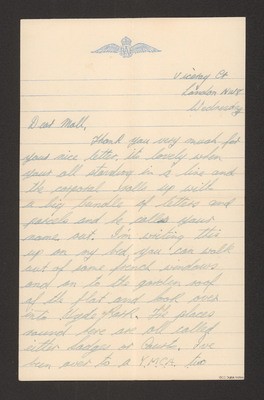 Viceroy Ct
London N.W.8.
Wednesday
Dear Moll,
Thank you very much for
your nice letter, its lovely when
your all standing in a line and
the corporal rolls up with
a big bundle of letters and
parcels and he calls your
name out. I'm writing this
up on my bed, you can walk
out of some french windows
and on to the garden roof
of the flat and look over
into Hyde Park. The places
round here are all called
either lodges or Courts. I've
been over to a Y.M.C.A. two